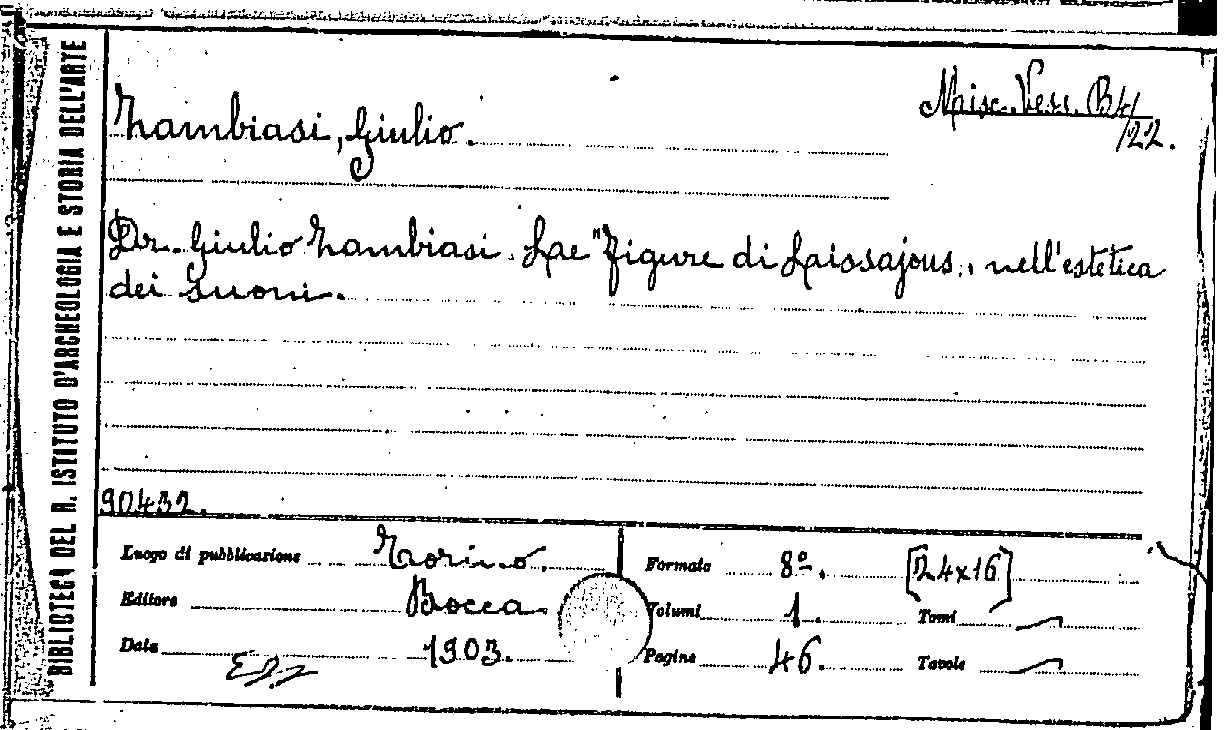 BIBLIOTECA DEL R. ISTITUTO D'ARCHEOLOGIA E STORIA DELL'ARTE
Misc. Vess. B 4/
/22.
Zambiasi, Giulio.
Dr. Giulio Zambiasi. Le "figure di Laissajous„ nell'estetica
dei suoni.
90432.
Luogo di pubblicazione Torino.
Editore Bocca.
Data 1903.
Formato 8º. [24x16]
Volumi 1. Tomi —
Pagine 46. Tavole —